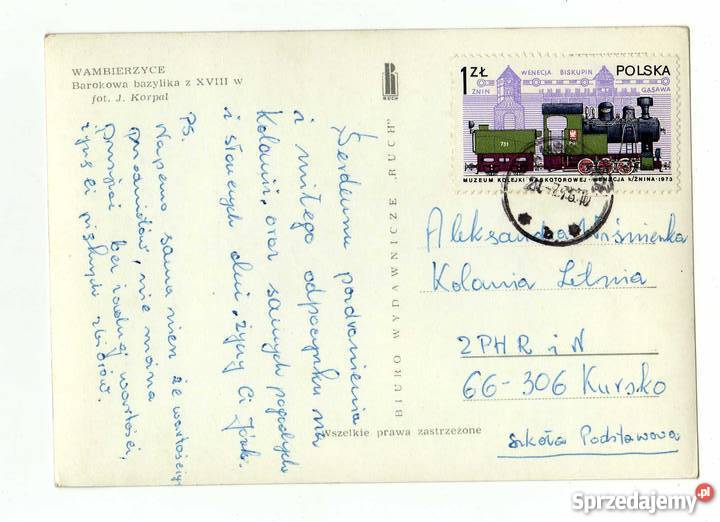 WAMBIERZYCE
Barokowa bazylika z XVIII w
fot. J. Korpal
Serdeczne pozdrowienia
i miłego odpoczynku na
Kolonii, oraz samych pogodnych
i słonecznych dni życzy Ci
PS.
Napewno sama wiesz że wartościowych
przedmiotów, nie można
bez żadnej wartości,
życzę Ci pięknych zbiorów.
RUCH
BIURO WYDAWNICZE „RUCH”
Wszelkie prawa zastrzeżone
1 ZŁ
WENECJA BISKUPIN
POLSKA
ŻNIN
GĄSAWA
731
MUZEUM KOLEJKI WĄSKOTOROWEJ-WENECJA k/ŻNINA-1973
* b *
Aleksandra Wiśnienka
Kolonia Letnia
ZPHR i N
66-306 Kursko
szkoła Podstawowa
Sprzedajemy.pl